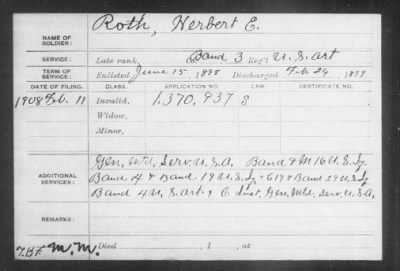 Roth, Herbert E.
NAME OF SOLDIER:
SERVICE: Late rank, Band, 3 Reg't U.S. Art
TERM OF SERVICE: Enlisted June 15, 1898 Discharged Feb 24, 1899
DATE OF FILING. CLASS. APPLICATION NO. CERTIFICATE NO.
1908 Feb. 11 Invalid, 1,370,937 S
Widow,
Minor,
ADDITIONAL SERVICES:
Gen. Mtd. Serv. U.S.A. Band & M 16 U.S. Inf.
Band 4 & Band 19 U.S. Inf. & Band 29 U.S. Inf
Band 4 U.S. Art. & C Inst. Gen. Mtd. Serv. U.S.A.
REMARKS:
M.M. Died , 1 , at